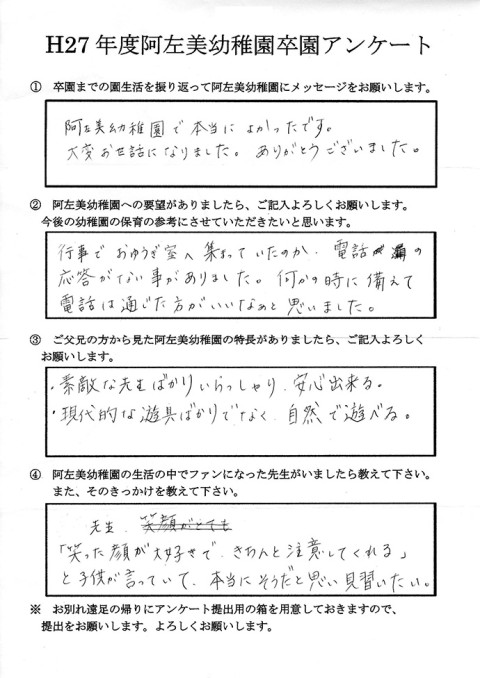 H27 年度阿左美幼稚園卒園アンケート
① 卒園までの園生活を振り返って阿左美幼稚園にメッセージをお願いします。
阿左美幼稚園で本当によかったです。
大変お世話になりました。ありがとうございました。
② 阿左美幼稚園への要望がありましたら、ご記入よろしくお願いします。
今後の幼稚園の保育の参考にさせていただきたいと思います。
行事でおゆうぎ室へ集まっていたのか、電話の
応答がない事がありました。何かの時に備えて
電話は通じた方がいいなぁと思いました。
③ ご父兄の方から見た阿左美幼稚園の特長がありましたら、ご記入よろしく
お願いします。
・素敵な先生ばかりいらっしゃり、安心出来る。
・現代的な遊具ばかりでなく、自然で遊べる。
④ 阿左美幼稚園の生活の中でファンになった先生がいましたら教えて下さい。
また、そのきっかけを教えて下さい。
先生、笑顔がとても
「笑った顔が大好きで、きちんと注意してくれる」
と子供が言っていて、本当にそうだと思い見習いたい。
※ お別れ遠足の帰りにアンケート提出用の箱を用意しておきますので、
提出をお願いします。よろしくお願いします。